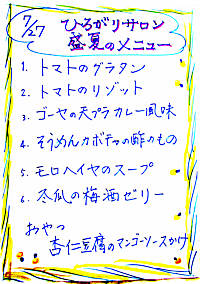 7/27 ひろがりサロン
盛夏のメニュー
1. トマトのグラタン
2. トマトのリゾット
3. ゴーヤの天プラカレー風味
4. そうめんカボチャの酢のもの
5. モロヘイヤのスープ
6. 冬瓜の梅酒ゼリー
おやつ
杏仁豆腐のマンゴーソースかけ